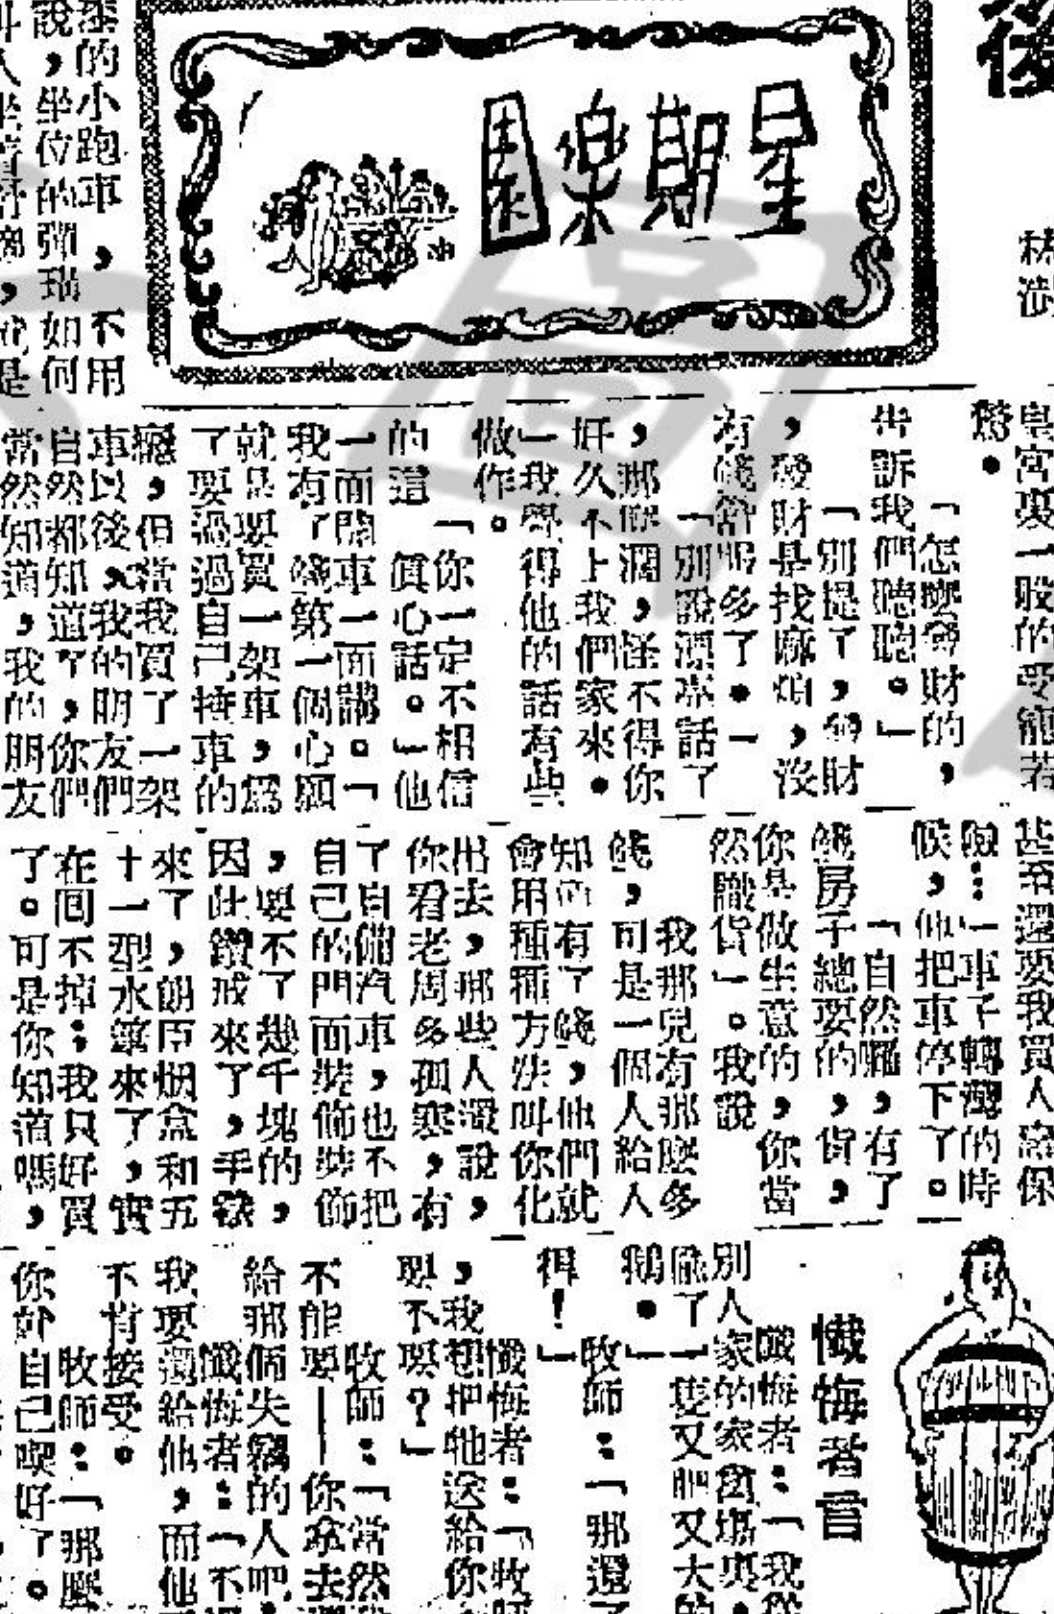 後
林
星期樂園
的小跑車，不用
說，坐位的彈瑞如何
皇宮裏一般的受寵若
驚。
「怎麼發財的，
告訴我們聽聽。」
「別提了，發財
，發財是找麻煩，沒
有錢當眼多了。」
「別說漂亮話了
，那麼濶，怪不得你
好久不上我們家來。
」我覺得他的話有些
做作。
「你一定不相信
的這 眞心話。」他
一面開車一面講。「
我有了錢第一個心願
就是要買一架車，爲
了要過過自己揸車的
癮，但當我買了一架
車以後，我的朋友們
自然都知道了，你們
當然知道，我的朋友
甚至還要我買人壽保
險…」車子轉灣的時
候，他把車停下了。
「自然囉，有了
錢房子總要的，貨，
你是做生意的，你當
然識貨」。我說
我那兒有那麼多
錢，可是一個人給人
知道有了錢，他們就
會用種種方法叫你化
出去，那些人還說，
你看老周多孤寒，有
了自備汽車，也不把
自己的門面裝飾裝飾
，要不了幾千塊的，
因此鑽戒來了，手錶
來了，朗臣烟盒和五
十一型水筆來了，實
在囘不掉；我只好買
了。可是你知道嗎，
懺悔者言
懺悔者：「我從
別人家的家禽塲裏，
偸了一隻又肥又大的
鵝。」
牧師：「那還了
得！」
懺悔者：「牧師
，我想把牠送給你
要不要？」
牧師：「當然我
不能要——你拿去還
給那個失竊的人吧
懺悔者：「不過
我要還給他，而他
不肯接受。
牧師：「那麼
你就自己喫好了。